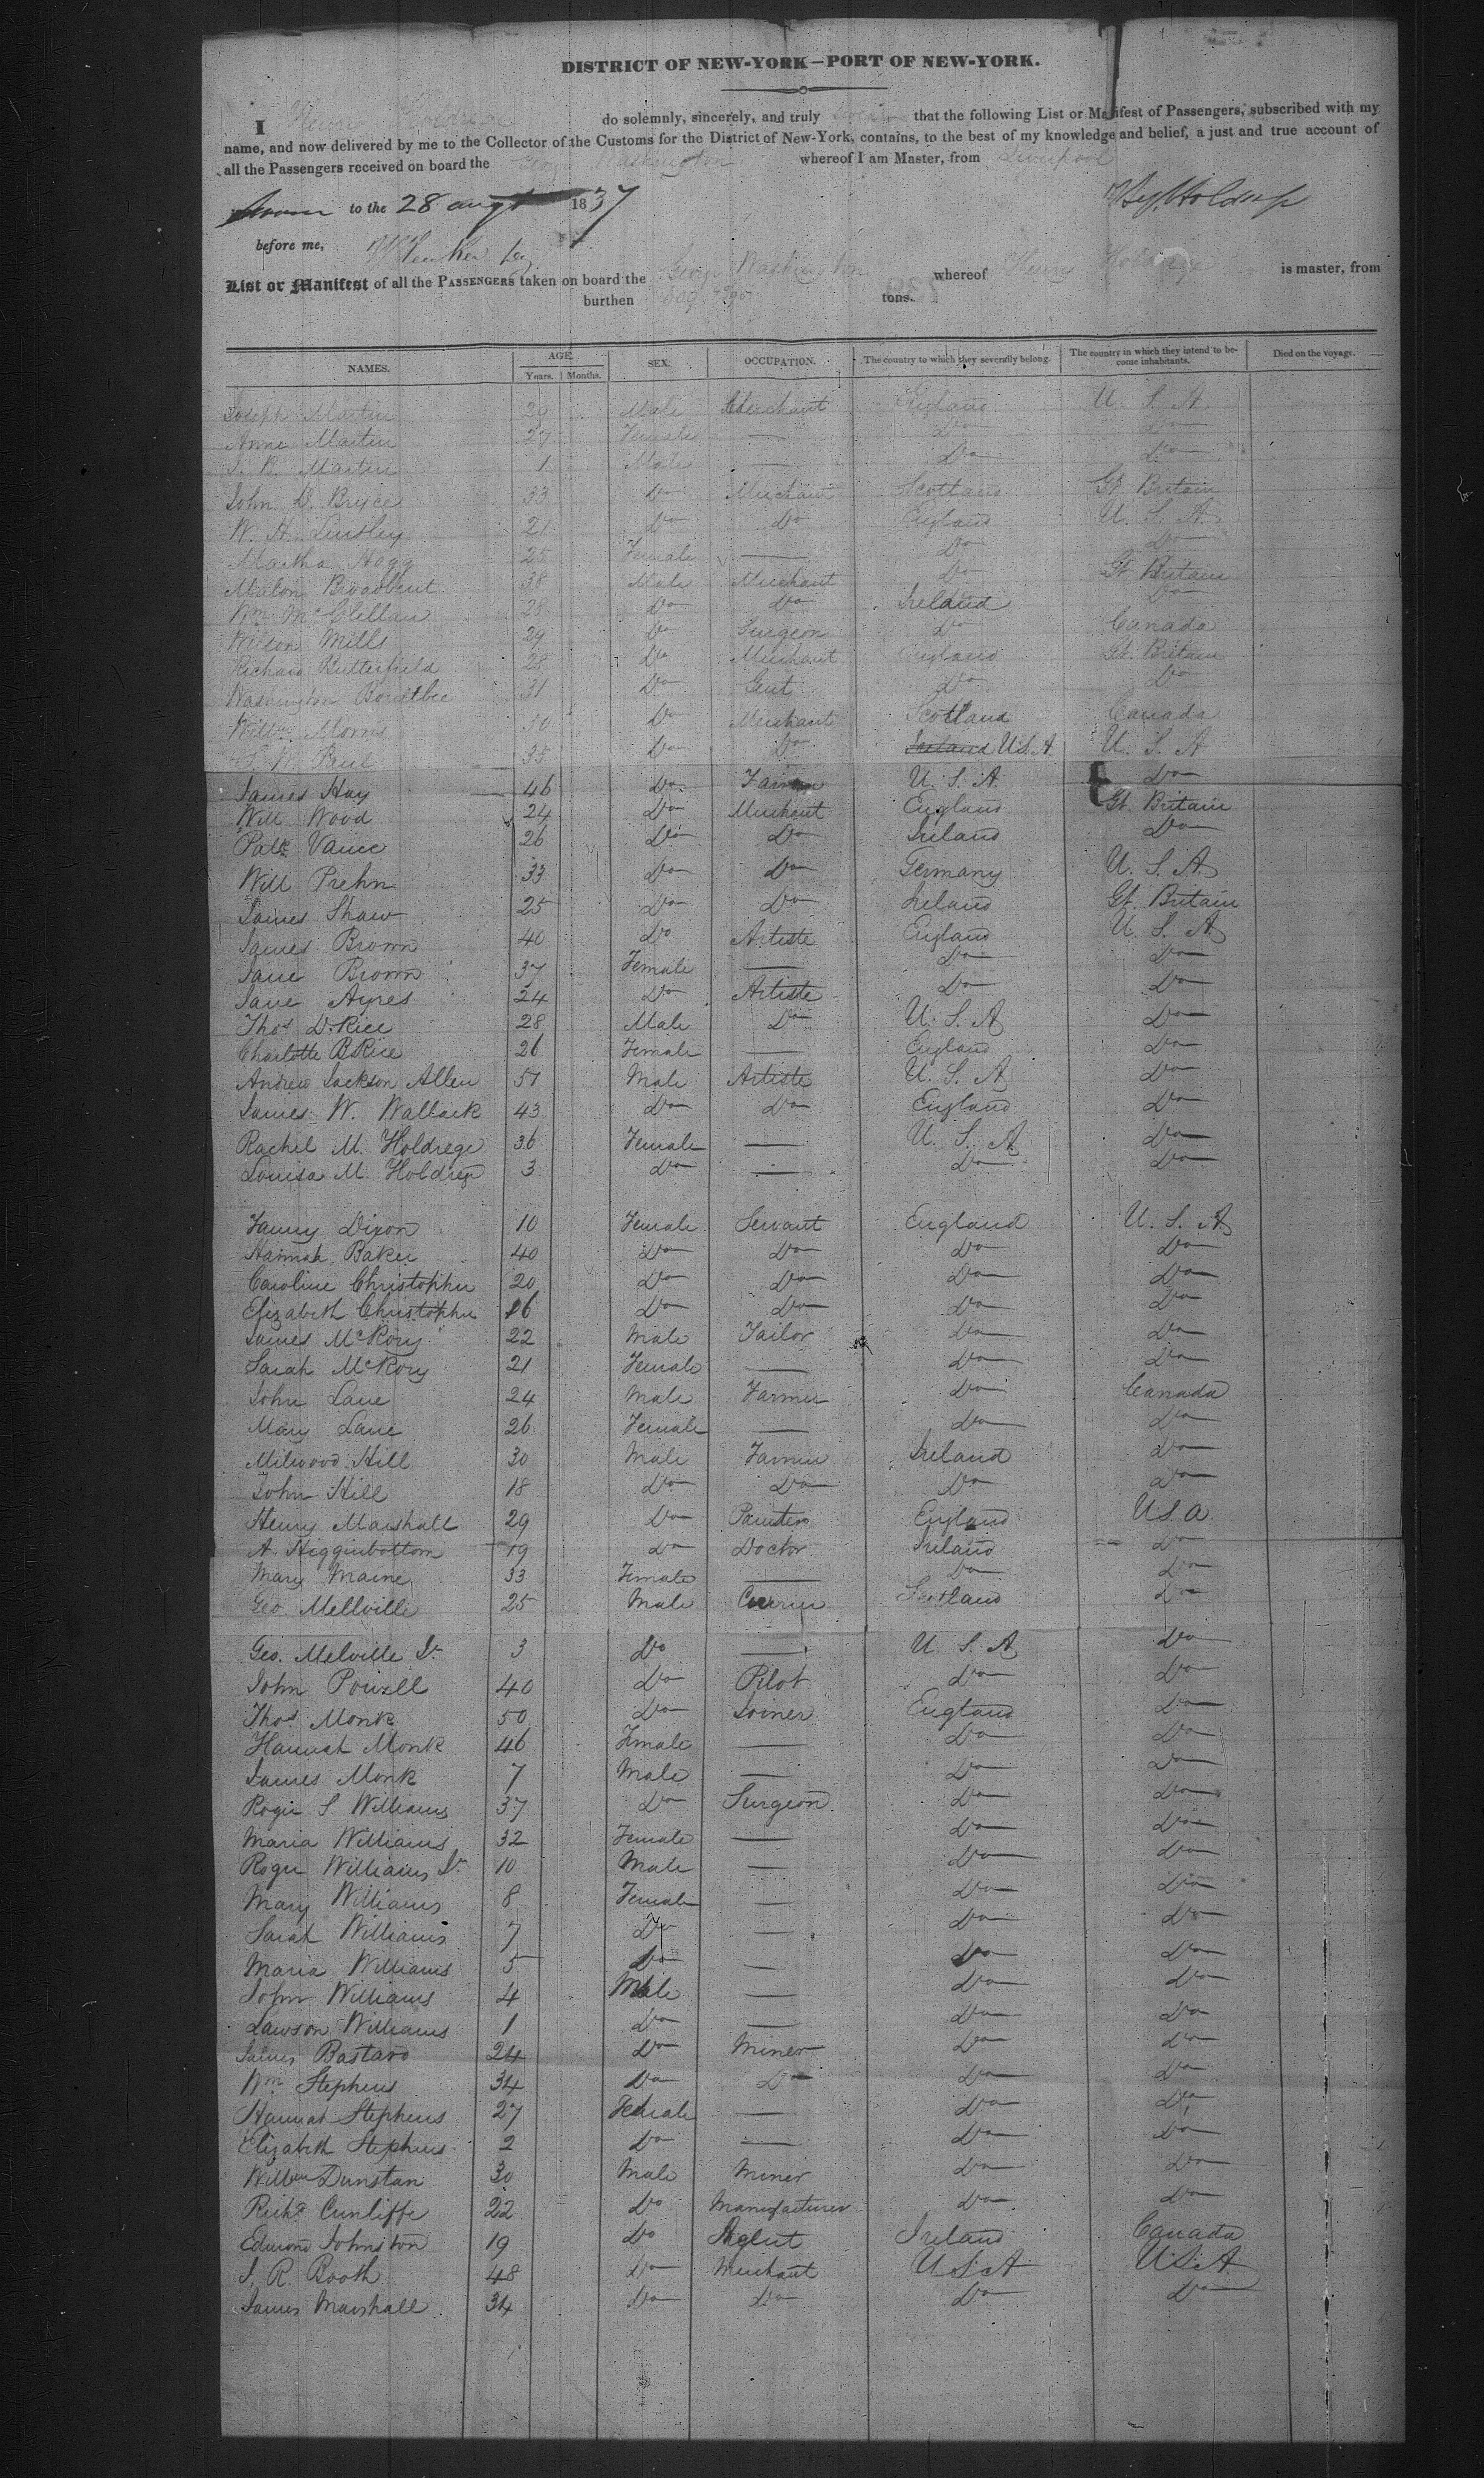 DISTRICT OF NEW-YORK—PORT OF NEW-YORK.
I Henry Holdrege do solemnly, sincerely, and truly that the following List or Manifest of Passengers, subscribed with my
name, and now delivered by me to the Collector of the Customs for the District of New-York, contains, to the best of my knowledge and belief, a just and true account of
all the Passengers received on board the George Washington whereof I am Master, from Liverpool
Sworn to the 28 augt 1837 Hy. Holdrege
before me,
List or Manifest of all the PASSENGERS taken on board the George Washington whereof Henry Holdrege is master, from
burthen tons.
NAMES. AGE. Years. Months. SEX. OCCUPATION. The country to which they severally belong. The country in which they intend to become inhabitants. Died on the voyage.
Joseph Martin 29 Male Merchant England U. S. A.
Anne Martin 27 Female — Do Do
J. R. Martin 1 Male — Do Do
John D. Bryce 33 Do Merchant Scotland Gt. Britain
W. H. Linsley 21 Do Do England U. S. A
Martha Hogg 25 Female — Do Do
Malon Broadbent 38 Male Merchant Do Gt Britain
Wm McClellan 28 Do Do Ireland Do
Wilson Mills 29 Do Surgeon Do Canada
Richard Butterfield 28 Do Merchant England Gt. Britain
Washington Boultbee 31 Do Gent Do Do
Willm Morris 30 Do Merchant Scotland Canada
S. Paul 35 Do Do Ireland U.S.A U. S. A
James Hay 46 Do Farmer U. S. A. Do
Will Wood 24 Do Merchant England Gt. Britain
Patk Vance 26 Do Do Ireland Do
Will Prehn 33 Do Do Germany U. S. A.
James Shaw 25 Do Do Ireland Gt. Britain
James Brown 40 Do Artiste England U. S. A
Jane Brown 37 Female — Do Do
Jane Ayres 24 Do Artiste Do Do
Thos D. Rice 28 Male Do U. S. A Do
Charlotte B Rice 26 Female — England Do
Andrew Jackson Allen 51 Male Artiste U. S. A Do
James W. Wallack 43 Do Do England Do
Rachel M. Holdrege 36 Female — U. S. A Do
Louisa M. Holdrege 3 Do — Do Do
Fanny Dixon 10 Female Servant England U. S. A.
Hannah Baker 40 Do Do Do Do
Caroline Christopher 20 Do Do Do Do
Elizabeth Christopher 16 Do Do Do Do
James McRory 22 Male Tailor Do Do
Sarah McRory 21 Female — Do Do
John Lane 24 Male Farmer Do Canada
Mary Lane 26 Female — Do Do
Milwood Hill 30 Male Farmer Ireland Do
John Hill 18 Do Do Do Do
Henry Marshall 29 Do Painter England U S a
A. Higginbottom 19 Do Doctor Ireland Do
Mary Maine 33 Female — Do Do
Geo. Mellville 25 Male Currier Scotland Do
Geo. Melville Jr 3 Do — U. S. A Do
John Powell 40 Do Pilot Do Do
Thos Monk 50 Do Joiner England Do
Hannah Monk 46 Female — Do Do
James Monk 7 Male — Do Do
Roger S. Williams 37 Do Surgeon Do Do
Maria Williams 32 Female — Do Do
Roger Williams Jr 10 Male — Do Do
Mary Williams 8 Female — Do Do
Sarah Williams 7 Do — Do Do
Maria Williams 5 Do — Do Do
John Williams 4 Male — Do Do
Lawson Williams 1 Do — Do Do
James Bastard 24 Do Miner Do Do
Wm Stephens 34 Do Do Do Do
Hannah Stephens 27 Female — Do Do
Elizabeth Stephens 2 Do — Do Do
Willm Dunstan 30 Male Miner Do Do
Richd Cunliffe 22 Do Manufacturer Do Do
Edmond Johnston 19 Do Agent Ireland Canada
J. R. Booth 48 Do Merchant U S A U S A
James Marshall 34 Do Do Do Do